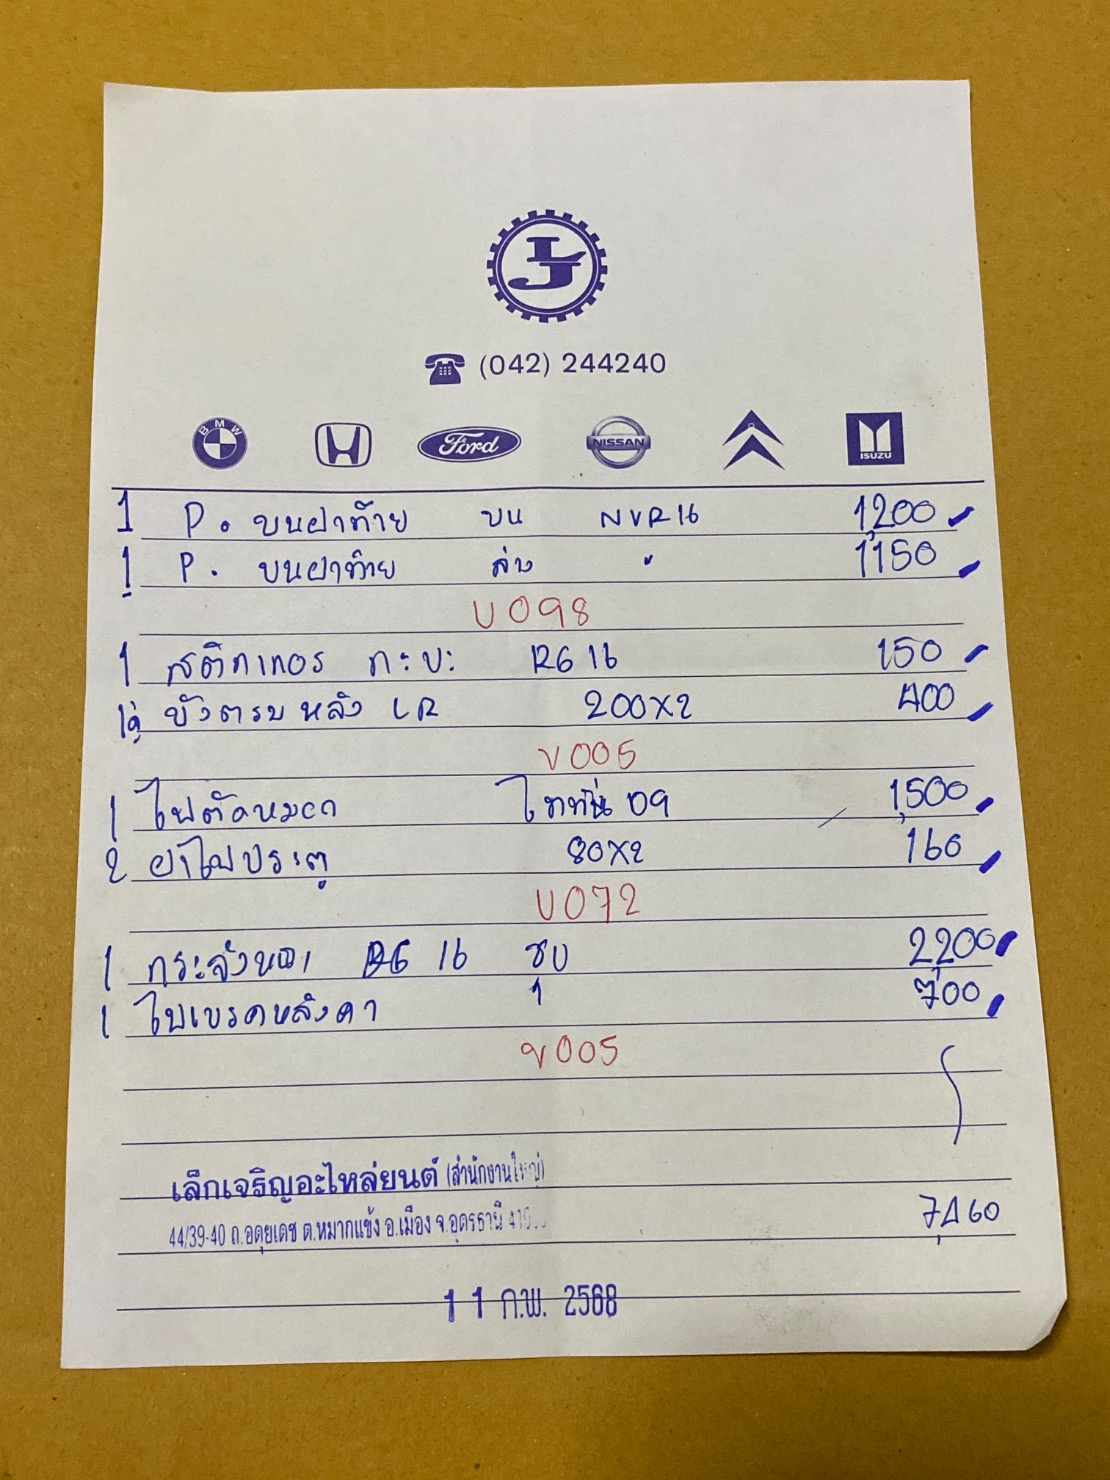 LJ
(042) 244240
BMW Ford NISSAN ISUZU
1 P. ขนฝาท้าย บน NVR16 1,200
1 P. ขนฝาท้าย ล่าง " 1150
U098
1 สติกเกอร์ กะบะ RG 16 150
1คู่ บังตรบหลัง LR 200x2 400
V005
1 ไฟตัดหมอก ไททัน 09 1,500
2 ฝาไฟประตู 80x2 160
U072
1 กระจังหน้า RG 16 ชุบ 2,200
1 ไฟเบรคหลังคา 1 700
V005
เล็กเจริญอะไหล่ยนต์ (สำนักงานใหญ่)
44/39-40 ถ.อดุยเดช ต.หมากแข้ง อ.เมือง จ.อุดรธานี
7,460
11 ก.พ. 2568